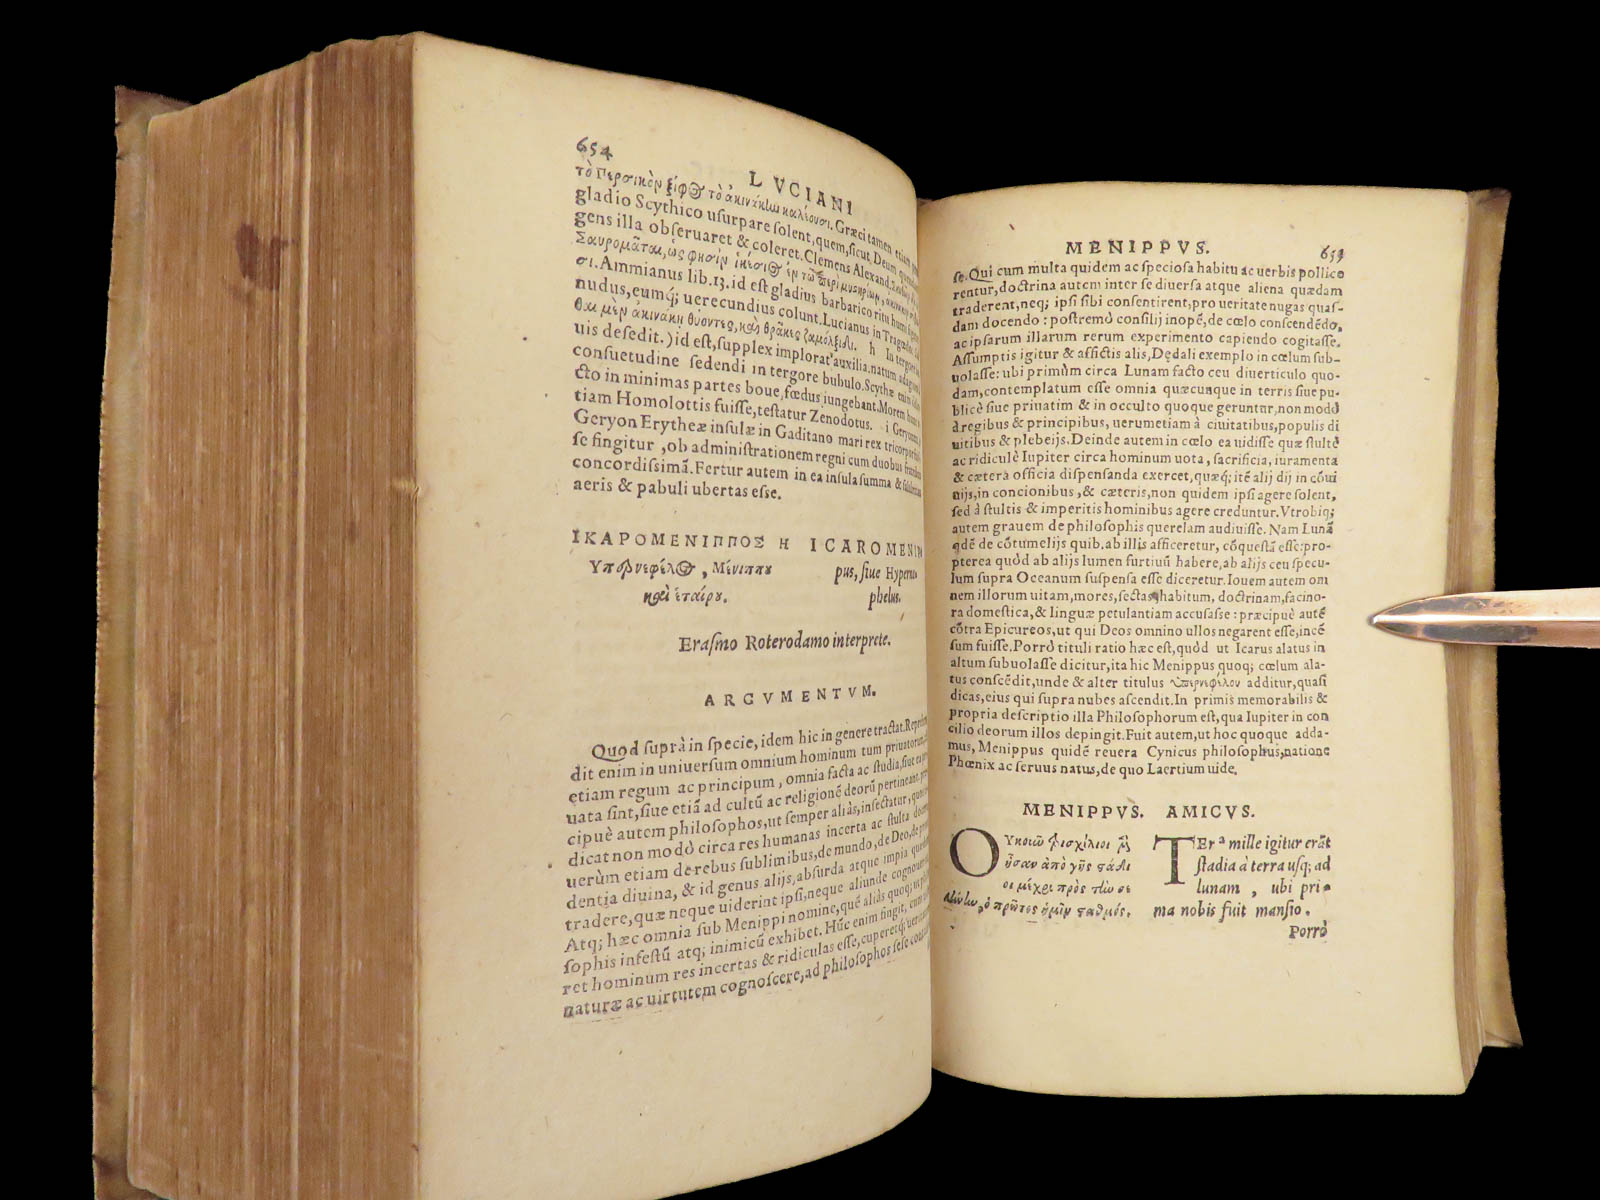 654
LVCIANI
τὸ Περσικὸν ξίφος τὸ ἀκινάκην καλέουσι. Græci tamen etiam
gladio Scythico usurpare solent, quem, sicut Deum
gens illa obseruaret & coleret. Clemens Alexand.
Σαυρομᾶται, ὡς φησὶν ἱκέσιος ἐν τῷ περὶ μυστηρίων,
σι. Ammianus lib. 13. id est gladius barbarico ritu humi
nudus, eumq; uerecundius colunt. Lucianus in
θαι μὲν ἀκινάκη θύοντες, καὶ θρᾷκες ζαμόλξιδι. h In tergore
uis desedit.) id est, supplex implorat auxilia. natum
consuetudine sedendi in tergore bubulo. Scythæ enim
cto in minimas partes boue, fœdus iungebant. Morem
tiam Homolottis fuisse, testatur Zenodotus. i
Geryon Erytheæ insulæ in Gaditano mari rex tricorpor
se fingitur, ob administrationem regni cum duobus
concordissimã. Fertur autem in ea insula summa &
aeris & pabuli ubertas esse.
ΙΚΑΡΟΜΕΝΙΠΠΟΣ Η ICAROMENIP
Ὑπερνεφέλος, Μένιππου pus, siue Hyper
καὶ ἑταίρου. phelus.
Erasmo Roterodamo interprete.
ARGVMENTVM.
Quod suprà in specie, idem hic in genere tractat.
dit enim in uniuersum omnium hominum tum priuatorum,
etiam regum ac principum, omnia facta ac studia, siue ea
uata sint, siue etiã ad cultũ ac religionẽ deorũ pertineant.
cipuè autem philosophos, ut semper aliàs, insectatur,
dicat non modò circa res humanas incerta ac stulta
uerùm etiam de rebus sublimibus, de mundo, de Deo, de
dentia diuina, & id genus alijs, absurda atque impia
tradere, quæ neque uiderint ipsi, neque aliunde
Atq; hæc omnia sub Menippi nomine, quẽ aliàs quoq;
sophis infestũ atq; inimicũ exhibet. Hũc enim fingit, cum
ret hominum res incertas & ridiculas esse, cuperetq;
naturæ ac uirtutem cognoscere, ad philosophos sese
MENIPPVS. 655
se. Qui cum multa quidem ac speciosa habitu ac uerbis pollice
rentur, doctrina autem inter se diuersa atque aliena quædam
traderent, neq; ipsi sibi consentirent, pro ueritate nugas quas-
dam docendo: postremò consilij inopẽ, de cœlo conscendẽdo,
ac ipsarum illarum rerum experimento capiendo cogitasse.
Assumptis igitur & affictis alis, Dędali exemplo in cœlum sub-
uolasse: ubi primùm circa Lunam facto ceu diuerticulo quo-
dam, contemplatum esse omnia quæcunque in terris siue pu-
blicè siue priuatim & in occulto quoque geruntur, non modò
à regibus & principibus, uerumetiam à ciuitatibus, populis di
uitibus & plebeijs. Deinde autem in cœlo ea uidisse quæ stultè
ac ridiculè Iupiter circa hominum uota, sacrificia, iuramenta
& cæterà officia dispensanda exercet, quæq; itẽ alij dij in cõui
uijs, in concionibus, & cæteris, non quidem ipsi agere solent,
sed à stultis & imperitis hominibus agere creduntur. Vtrobiq;
autem grauem de philosophis querelam audiuisse. Nam Lunã
qdẽ de cõtumelijs quib. ab illis afficeretur, cõquestã esse: pro-
pterea quòd ab alijs lumen furtiuũ habere, ab alijs ceu specu-
lum supra Oceanum suspensa esse diceretur. Iouem autem om
nem illorum uitam, mores, sectas, habitum, doctrinam, facino-
ra domestica, & linguæ petulantiam accusasse: præcipuè autẽ
cõtra Epicureos, ut qui Deos omnino ullos negarent esse, incẽ
sum fuisse. Porrò tituli ratio hæc est, quòd ut Icarus alatus in
altum subuolasse dicitur, ita hic Menippus quoq; cœlum ala-
tus conscẽdit, unde & alter titulus ὑπερνεφέλου additur, quasi
dicas, eius qui supra nubes ascendit. In primis memorabilis &
propria descriptio illa Philosophorum est, qua Iupiter in con
cilio deorum illos depingit. Fuit autem, ut hoc quoque adda-
mus, Menippus quidẽ reuera Cynicus philosophus, natione
Phœnix ac seruus natus, de quo Laertium uide.
MENIPPVS. AMICVS.
ΟΥκοιῶ τρισχίλιοι μὲν TEr a mille igitur erãt
ἦσαν ἀπὸ γῆς στάδι stadia à terra usq; ad
οι μέχρι πρὸς τὴν σε lunam, ubi pri-
λήνην, ὁ πρῶτος ἡμῖν σταθμός. ma nobis fuit mansio.
Porrò